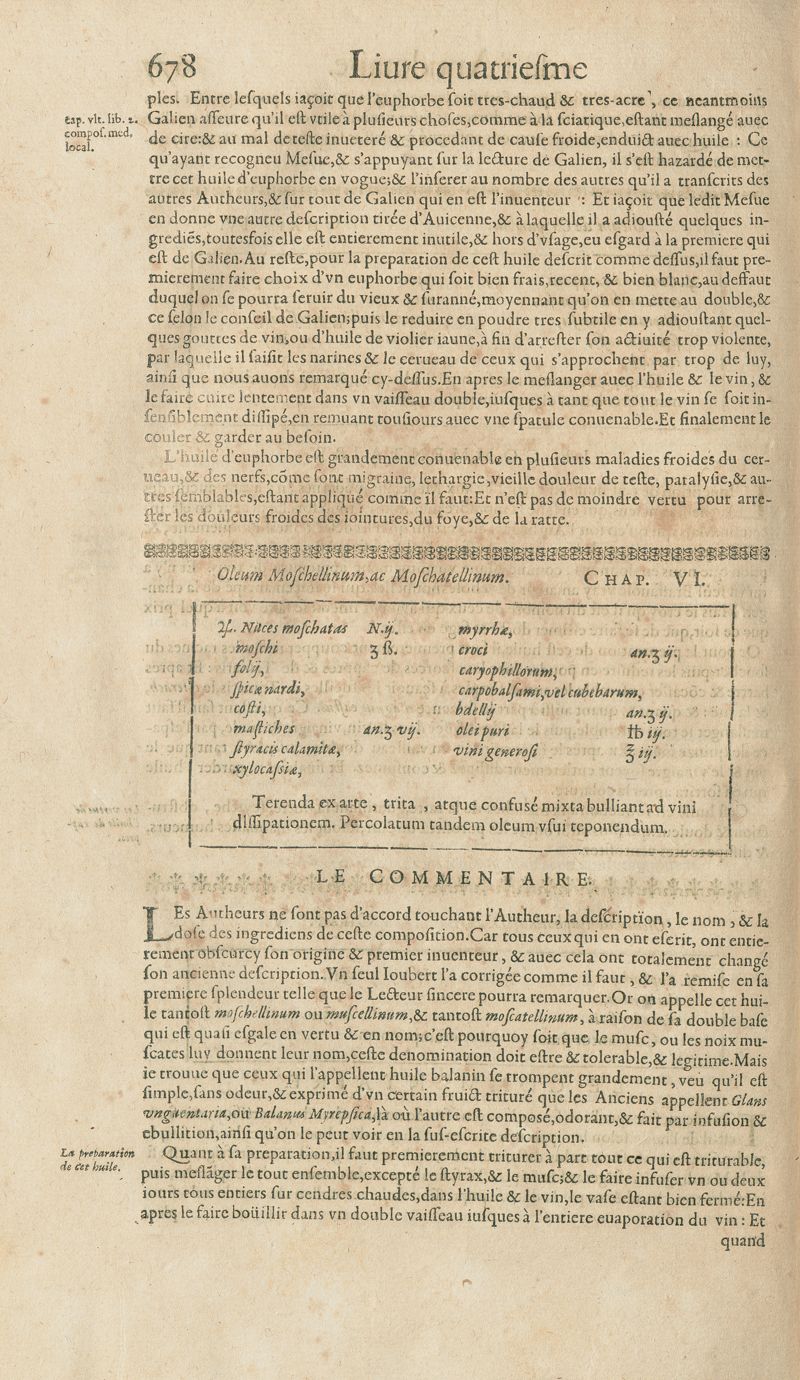 678 Liure quatriesme
ples. Entre lesquels iaçoit que l'euphorbe soit tres-chaud & tres-acre, ce neantmoins
cap. vlt. lib. 2. Galien asseure qu'il est vtile à plusieurs choses,comme à la sciatique,estant meslangé auec
compos. med. de cire:& au mal de teste inueteré & procedant de cause froide,enduict auec huile : Ce
local. qu'ayant recogneu Mesue,& s'appuyant sur la lecture de Galien, il s'est hazardé de met-
tre cet huile d'euphorbe en vogue;& l'inserer au nombre des autres qu'il a transcrits des
autres Autheurs,& sur tout de Galien qui en est l'inuenteur : Et iaçoit que ledit Mesue
en donne vne autre description tirée d'Auicenne,& à laquelle il a adiousté quelques in-
grediés,toutesfois elle est entierement inutile,& hors d'vsage,eu esgard à la premiere qui
est de Galien.Au reste,pour la preparation de cest huile descrit comme dessus,il faut pre-
mierement faire choix d'vn euphorbe qui soit bien frais,recent, & bien blanc,au deffaut
duquel on se pourra seruir du vieux & suranné,moyennant qu'on en mette au double,&
ce selon le conseil de Galien;puis le reduire en poudre tres subtile en y adioustant quel-
ques gouttes de vin,ou d'huile de violier iaune,à fin d'arrester son actiuité trop violente,
par laquelle il saisit les narines & le cerueau de ceux qui s'approchent par trop de luy,
ainsi que nous auons remarqué cy-dessus.En apres le meslanger auec l'huile & le vin, &
le faire cuire lentement dans vn vaisseau double,iusques à tant que tout le vin se soit in-
sensiblement dissipé,en remuant tousiours auec vne spatule conuenable.Et finalement le
couler & garder au besoin.
L'huile d'euphorbe est grandement conuenable en plusieurs maladies froides du cer-
ueau,& des nerfs,cõme sont migraine, lethargie,vieille douleur de teste, paralysie,& au-
tres semblables,estant appliqué comme il faut:Et n'est pas de moindre vertu pour arre-
ster les douleurs froides des iointures,du foye,& de la ratte.
Oleum Moschellinum,ac Moschatellinum. CHAP. VI.
♃. Nuces moschatas N.ij. myrrhæ,
moschi ʒ ß. croci an.ʒ ij.
folij, caryophillorum,
spicæ nardi, carpobalsami,vel cubebarum,
costi, bdellij an.ʒ ij.
mastiches an.ʒ vij. olei puri ℔ iij.
styracis calamitæ, vini generosi ℥ iij.
xylocassiæ,
Terenda ex arte, trita, atque confusé mixta bulliant ad vini
dissipationem. Percolatum tandem oleum vsui reponendum.
LE COMMENTAIRE.
LEs Autheurs ne sont pas d'accord touchant l'Autheur, la description, le nom, & la
dose des ingrediens de ceste composition.Car tous ceux qui en ont escrit, ont entie-
rement obscurcy son origine & premier inuenteur, & auec cela ont totalement changé
son ancienne description.Vn seul Ioubert l'a corrigée comme il faut, & l'a remise en sa
premiere splendeur telle que le Lecteur sincere pourra remarquer.Or on appelle cet hui-
le tantost moschellinum ou muscellinum,& tantost moscatellinum, à raison de sa double base
qui est quasi esgale en vertu & en nom;c'est pourquoy soit que le musc, ou les noix mu-
scates luy donnent leur nom,ceste denomination doit estre & tolerable,& legitime.Mais
ie trouue que ceux qui l'appellent huile balanin se trompent grandement, veu qu'il est
simple,sans odeur,& exprimé d'vn certain fruict trituré que les Anciens appellent Glans
vnguentaria,ou Balanus Myrepsica,là où l'autre est composé,odorant,& fait par infusion &
ebullition,ainsi qu'on le peut voir en la sus-escrite description.
La preparation de cet huile. Quant à sa preparation,il faut premierement triturer à part tout ce qui est triturable,
puis meslãger le tout ensemble,excepté le styrax,& le musc;& le faire infuser vn ou deux
iours tous entiers sur cendres chaudes,dans l'huile & le vin,le vase estant bien fermé:En
apres le faire boüillir dans vn double vaisseau iusques à l'entiere euaporation du vin : Et
quand